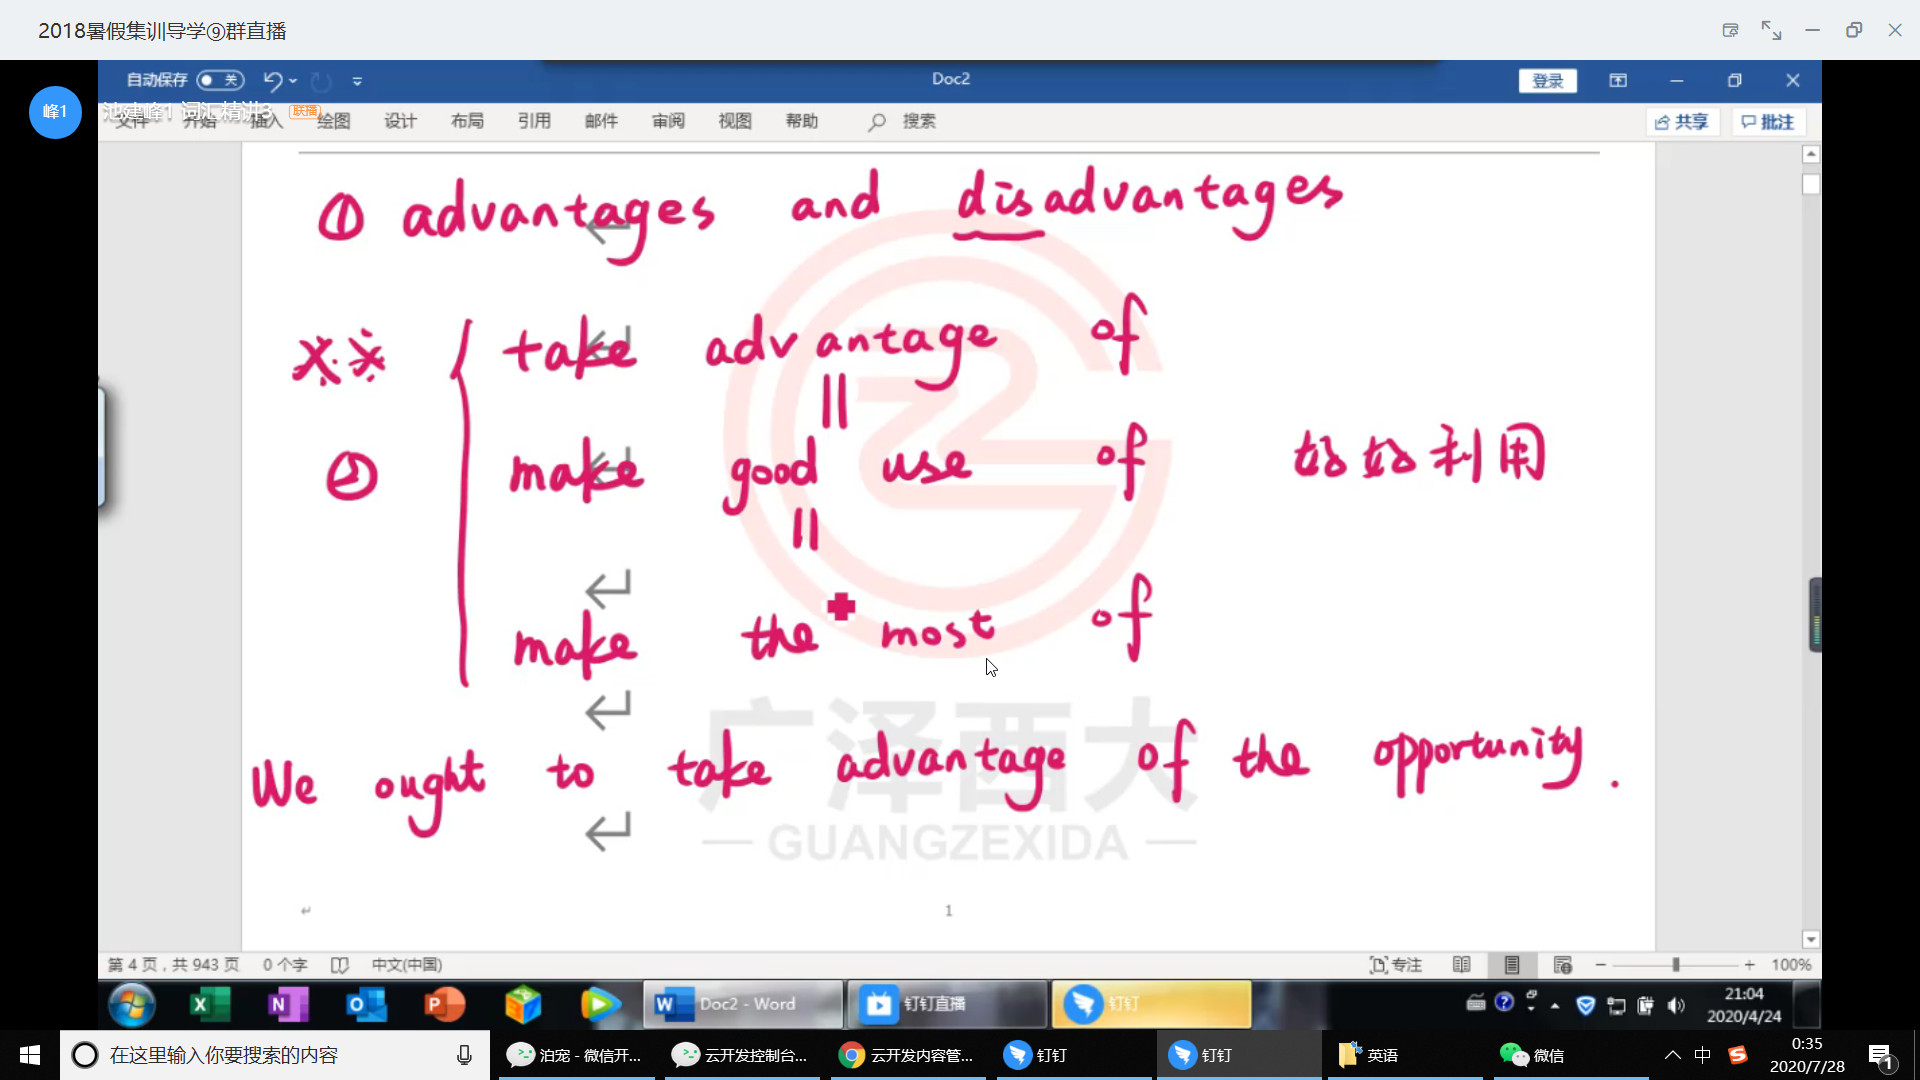 2018暑假集训导学⑨群直播
自动保存 关 Doc2 登录
峰1 池建峰1 词汇精讲3 联播
文件 开始 插入 绘图 设计 布局 引用 邮件 审阅 视图 帮助 搜索 共享 批注
① advantages and disadvantages
take advantage of
② make good use of 好好利用
make the most of
广泽西大
We ought to take advantage of the opportunity.
GUANGZEXIDA
1
第 4 页，共 943 页 0 个字 中文(中国) 专注 100%
Doc2 - Word 钉钉直播 钉钉 21:04
2020/4/24
在这里输入你要搜索的内容 泊宠 - 微信开... 云开发控制台... 云开发内容管... 钉钉 钉钉 英语 微信 中 0:35 1
2020/7/28